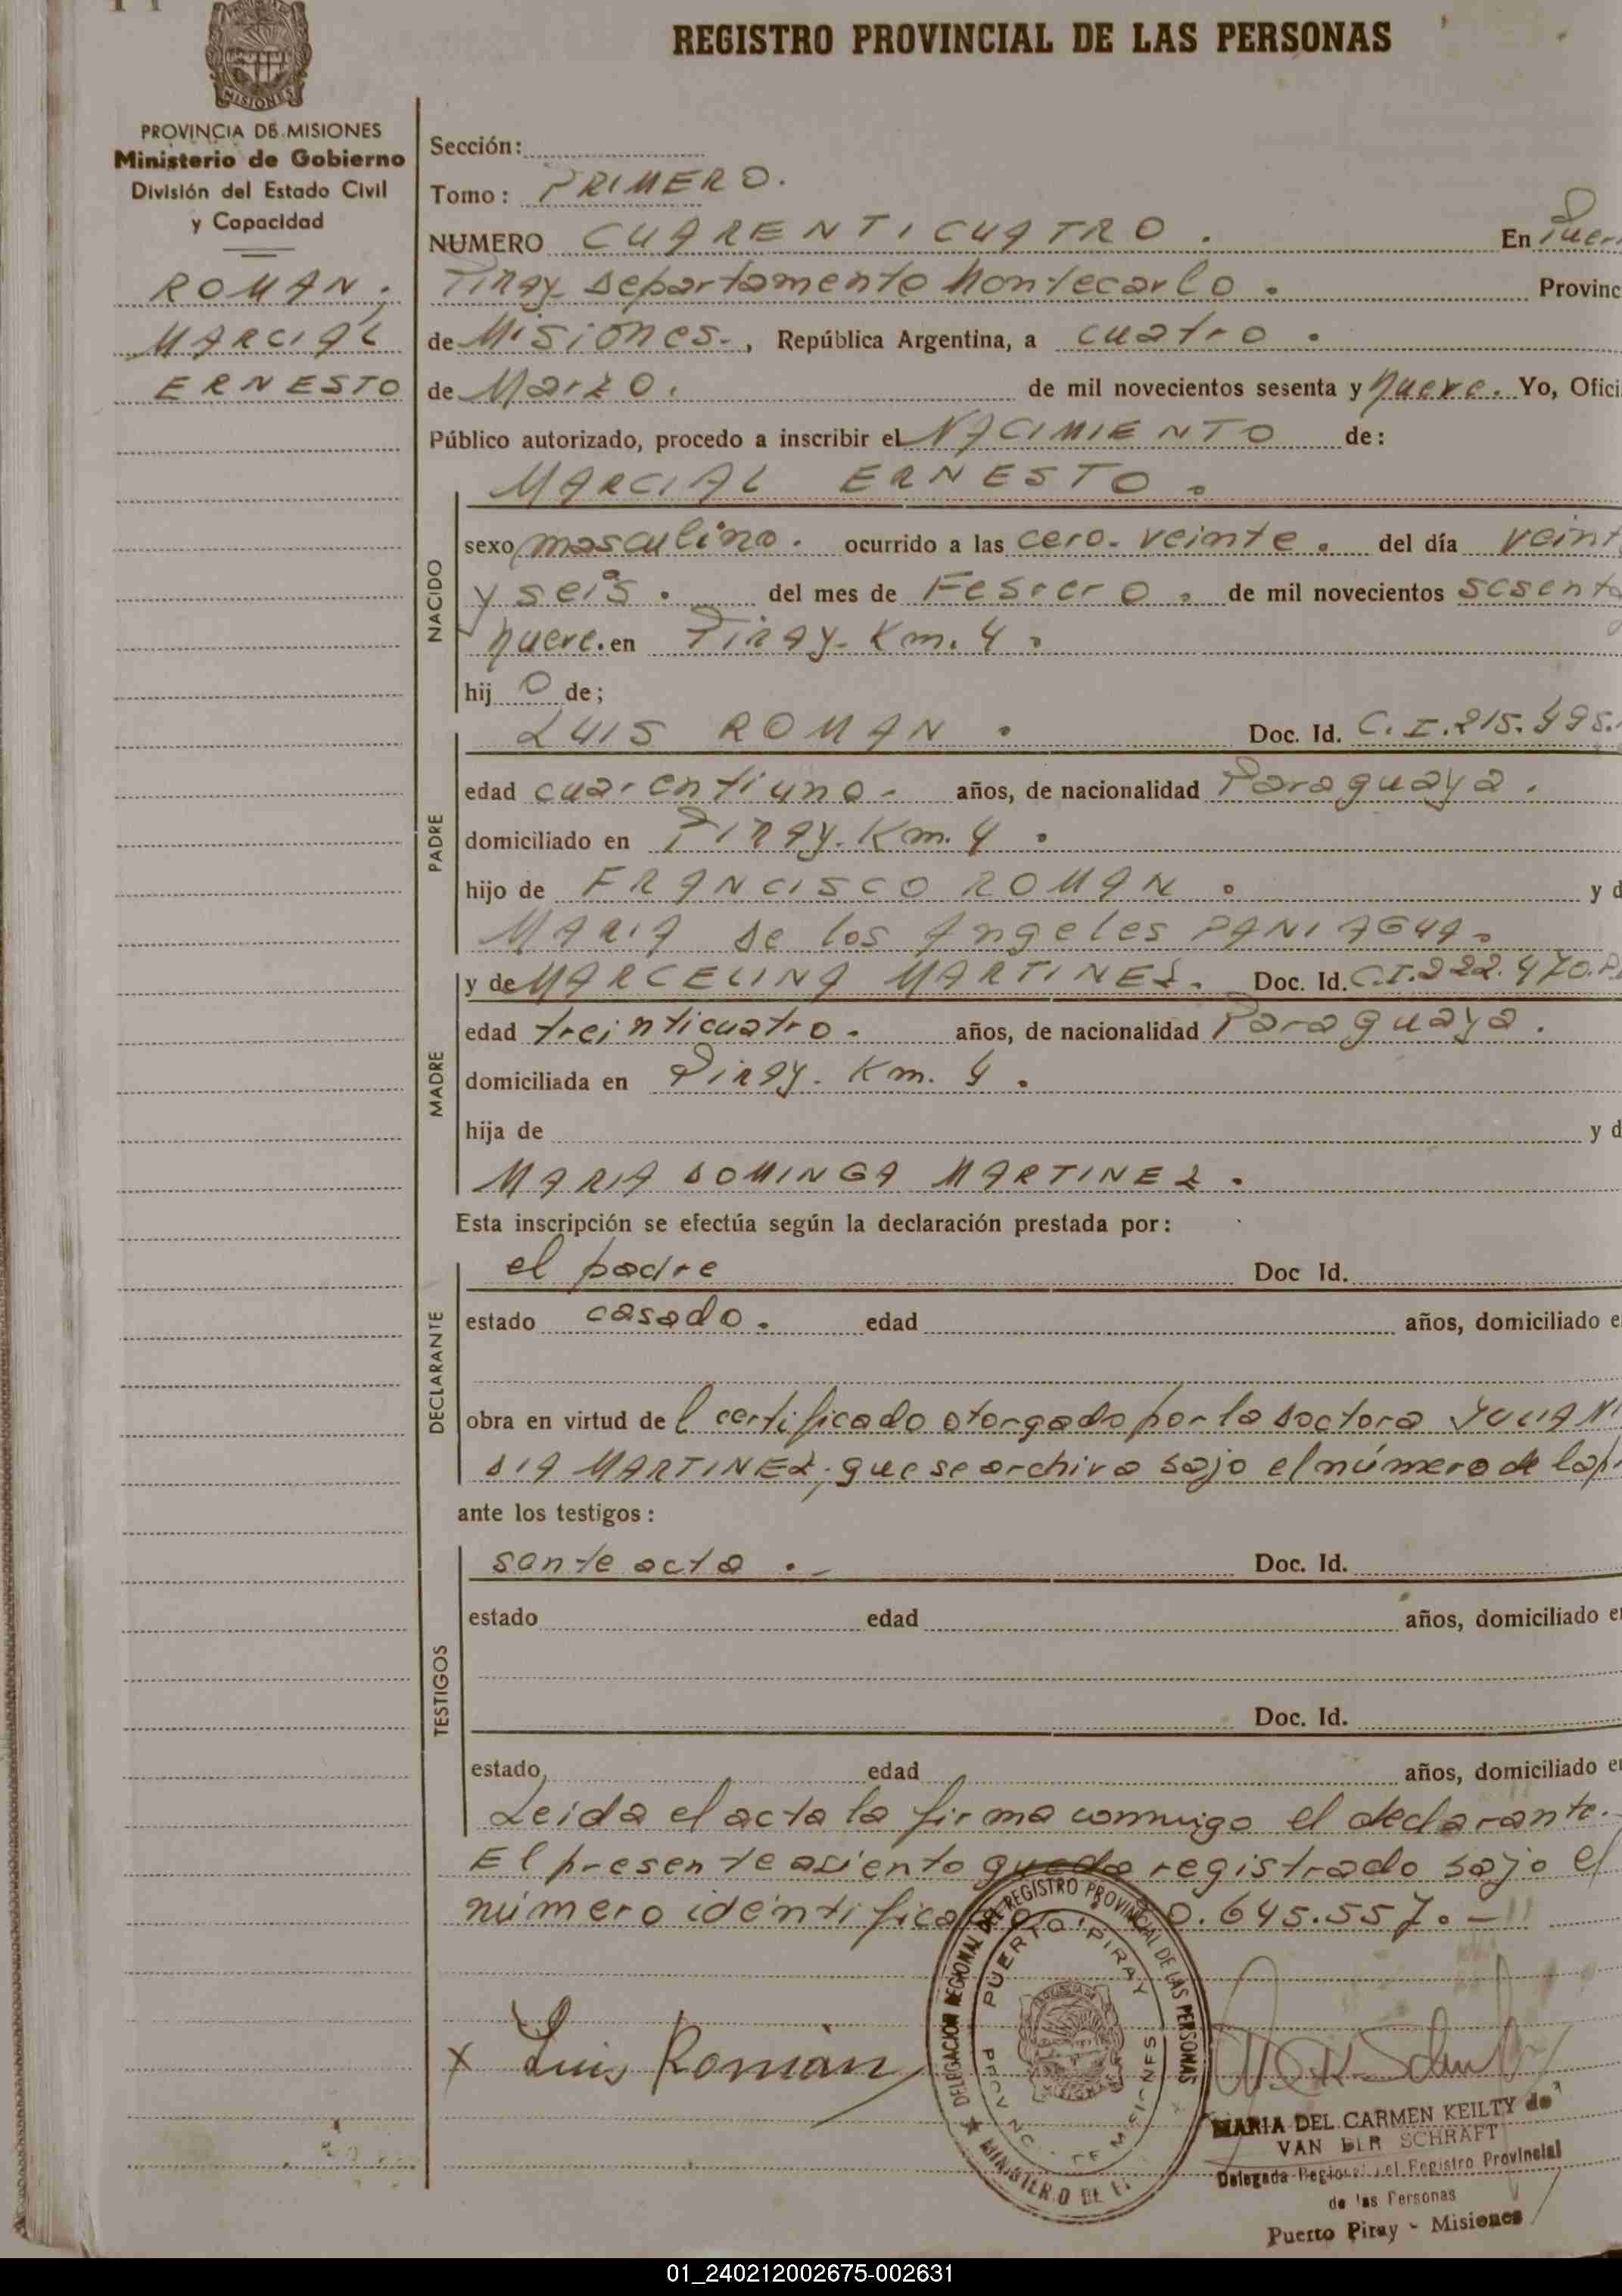 REGISTRO PROVINCIAL DE LAS PERSONAS
MISIONES
PROVINCIA DE MISIONES
Ministerio de Gobierno
División del Estado Civil
y Capacidad
ROMAN,
MARCIAL
ERNESTO
Sección:
Tomo: PRIMERO.
NUMERO CUARENTICUATRO. En Puer
Piray- Departamento Montecarlo. Provinc
de Misiones., República Argentina, a cuatro.
de Marzo. de mil novecientos sesenta y nueve. Yo, Ofici
Público autorizado, procedo a inscribir el NACIMIENTO de:
MARCIAL ERNESTO.
NACIDO
sexo masculino. ocurrido a las cero-veinte. del día veint
y seis. del mes de Febrero. de mil novecientos sesenta
nueve. en Piray- Km. 4.
hij o de;
LUIS ROMAN. Doc. Id. C.I.215.495.
PADRE
edad cuarentiuno- años, de nacionalidad Paraguaya.
domiciliado en Piray. Km. 4.
hijo de FRANCISCO ROMAN. y d
MARIA de los Angeles PANIAGUA.
y de MARCELINA MARTINEZ. Doc. Id. C.I.222.470.
MADRE
edad treinticuatro. años, de nacionalidad Paraguaya.
domiciliada en Piray. Km. 4.
hija de y d
MARIA DOMINGA MARTINEZ.
Esta inscripción se efectúa según la declaración prestada por:
el padre Doc Id.
DECLARANTE
estado casado. edad años, domiciliado e
obra en virtud de l certificado otorgado por la doctora
DIA MARTINEZ, que se archiva bajo el número de la
ante los testigos:
TESTIGOS
sante acta.- Doc. Id.
estado edad años, domiciliado e
Doc. Id.
estado edad años, domiciliado e
Leida el acta la firma conmigo el declarante.
El presente asiento queda registrado bajo el
número identifica 0.645.557.-
x Luis Román
DELEGACION REGIONAL DEL REGISTRO PROVINCIAL DE LAS PERSONAS
PUERTO PIRAY
MINISTERIO DE
MARIA DEL CARMEN KEILTY de
VAN DER SCHRAFT
Delegada Regional del Registro Provincial
de las Personas
Puerto Piray - Misiones
01_240212002675-002631